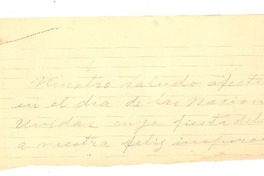 Nuestro saludo afectu
en el día de las Nacion
Unidas cuya fiesta deb
a nuestra feliz inspirac